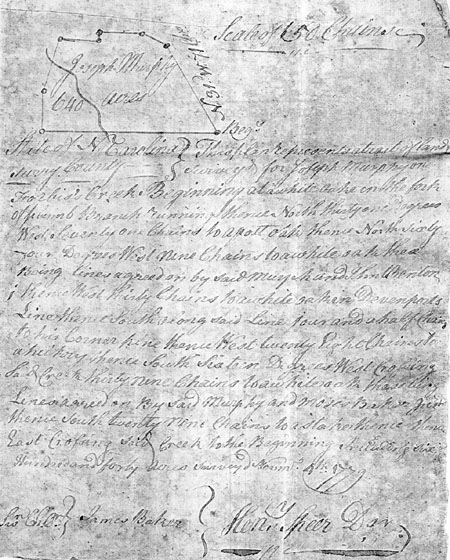 Scale of 50 Chains
Joseph Murphy
640 acres
N 31 W 71
Beg
State of N Carolina } This plan Represents a tract of Land
Surry County } Surveyd for Joseph Murphy on
Creek Beginning at a white oake in the fork
of Branch Running thence North thirty one Degrees
West Seventy one Chains to a oak thence North Sixty
four Degrees West Nine Chains to a white oak these
Being lines agreed on by said Murphy and John
thence West thirty Chains to a white oak in Devenports
Line thence South along said Line four and a half Chains
to his Corner thence West twenty Eight Chains to
a thence South Sixteen Degrees West Crossing
said Creek thirty nine Chains to a white oak
Line agreed on By Said Murphy and Moses Baker
thence South twenty nine Chains to a stake thence
East Crossing Said Creek to the Beginning Includeing Six
Hundred and forty acres Surveyd
James Baker } Henry Speer